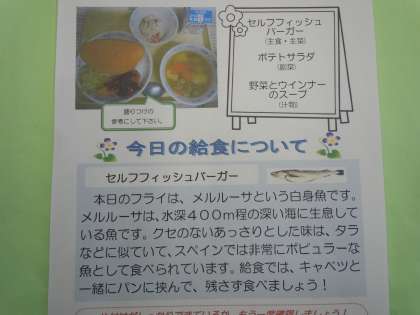 セルフフィッシュ
バーガー
(主食・主菜)
ポテトサラダ
(副菜)
野菜とウインナー
のスープ
(汁物)
盛りつけの
参考にして下さい。
今日の給食について
セルフフィッシュバーガー
本日のフライは、メルルーサという白身魚です。
メルルーサは、水深400m程の深い海に生息して
いる魚です。クセのないあっさりとした味は、タラ
などに似ていて、スペインでは非常にポピュラーな
魚として食べられています。給食では、キャベツと
一緒にパンに挟んで、残さず食べましょう!